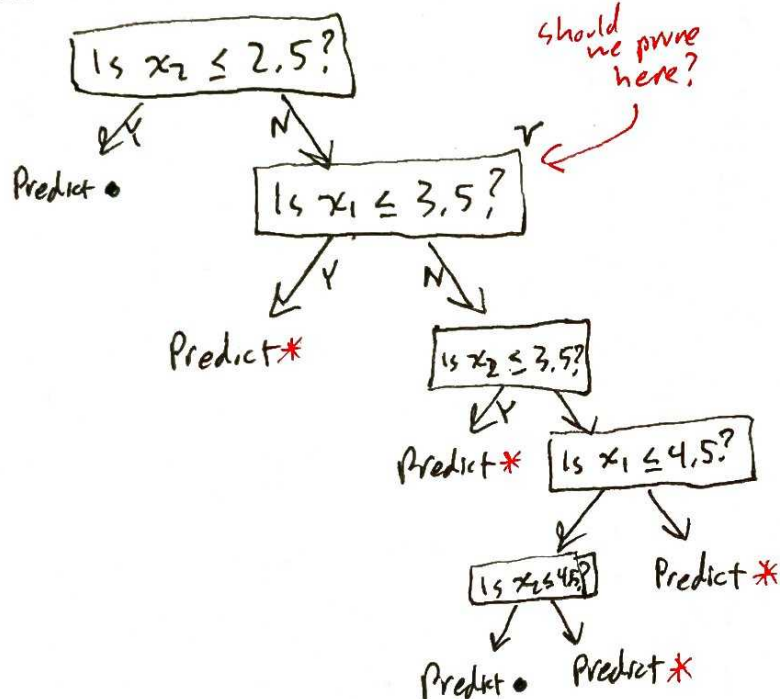 Is x₂ ≤ 2.5?
should
we prune
here?
Y
N
r
Predict •
Is x₁ ≤ 3.5?
Y
N
Predict *
Is x₂ ≤ 3.5?
Y
Predict *
Is x₁ ≤ 4.5?
Is x₂ ≤ 4.5?
Predict *
Predict •
Predict *